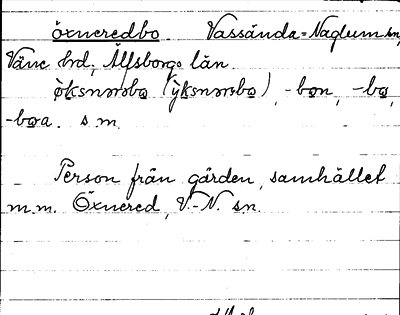 öxneredbo. Vassända-Naglum sn,
Väne hd, Älfsborgs län.
øksnərsbo (yksnərsbo), -bon, -bo,
-boa. s m.
Person från gården, samhället
m.m. Öxnered, V.-N. sn.